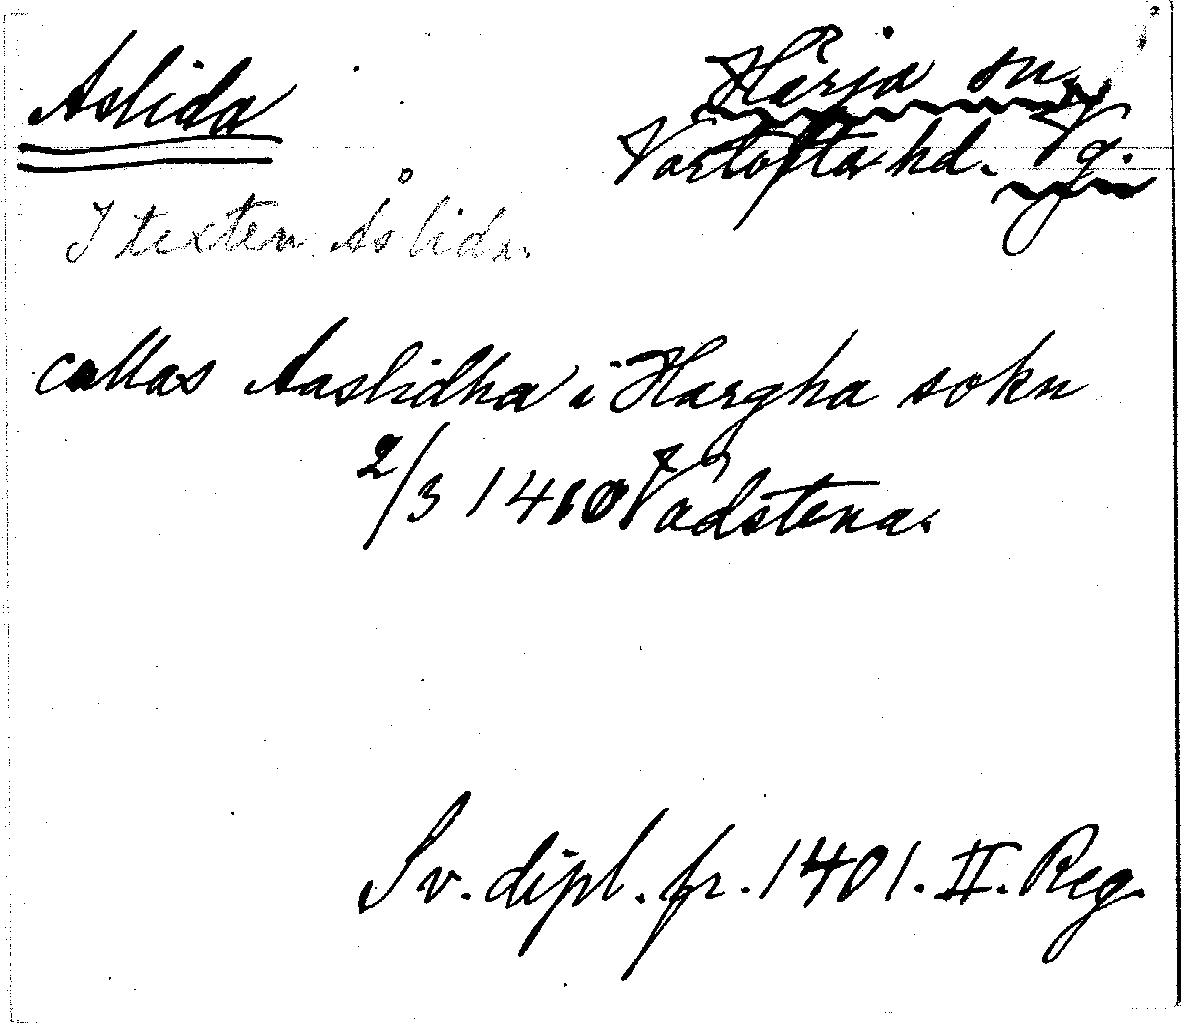 Aslida
Härja sn,
Vartofta hd. Vg.
I texten Åslida.
callas Aaslidha i Hargha sokn
2/3 1410 Vadstena.
Sv. dipl. fr. 1401. II. Reg.